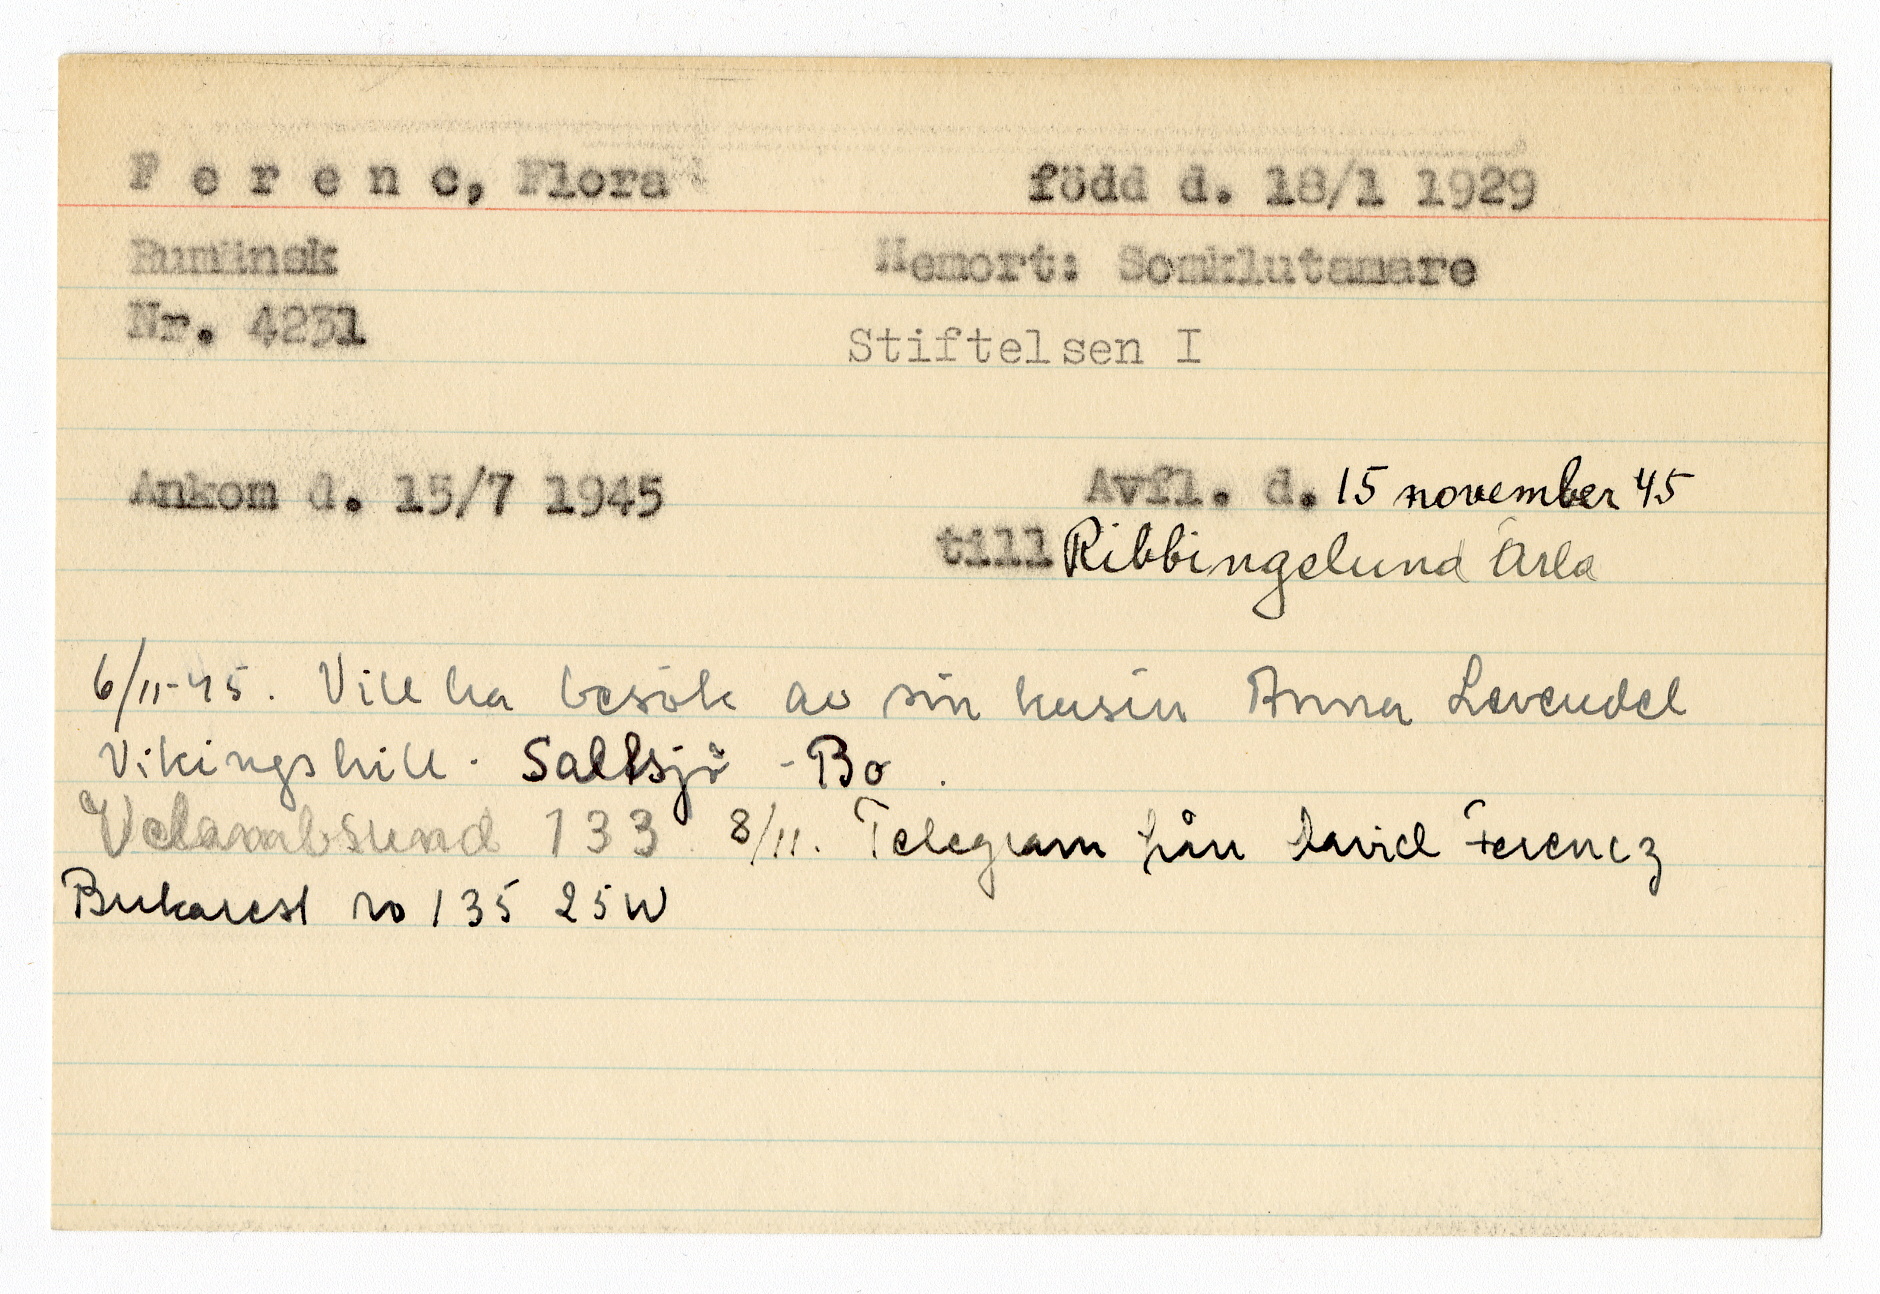 F e r e n c, Flora född d. 18/1 1929
Rumänsk Hemort: Somklutamare
Nr. 4231
Stiftelsen I
Ankom d. 15/7 1945 Avfl. d. 15 november 45
till Ribbingelund Ärla
6/11-45. Vill ha besök av sin kusin Anna Levendel
Vikingshill. Saltsjö-Bo.
Velambsund 133. 8/11. Telegram från David Ferencz
Bukarest no 135 25W